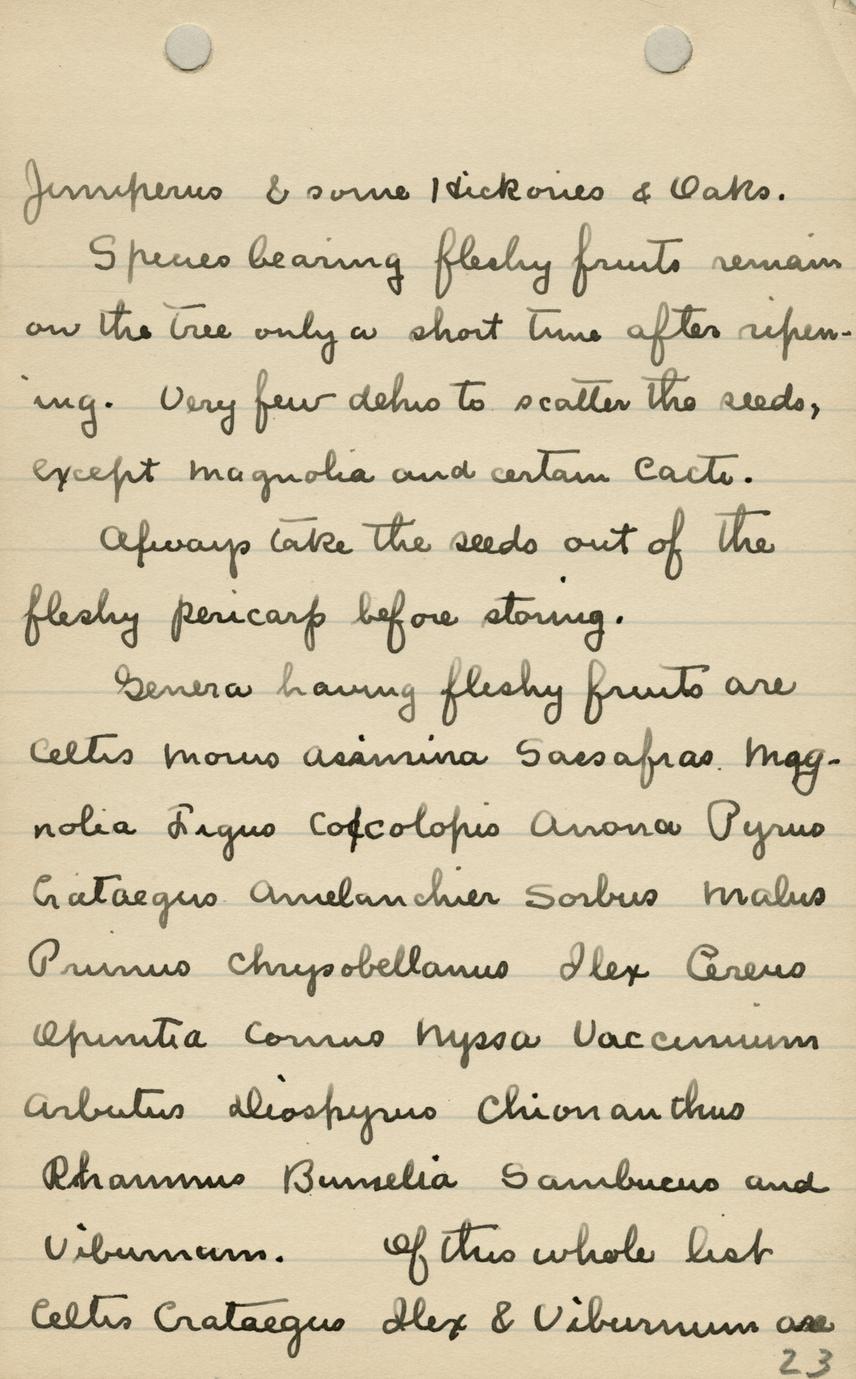 Juniperus & some Hickories & Oaks.
Species bearing fleshy fruits remain
on the tree only a short time after ripen-
ing. Very few dehis to scatter the seeds,
except Magnolia and certain Cacti.
Always take the seeds out of the
fleshy pericarp before storing.
Genera having fleshy fruits are
Celtis Morus Asimina Sassafras Mag-
nolia Figus Coccolopis Anona Pyrus
Crataegus Amelanchier Sorbus Malus
Prunus Chrysobellanus Ilex Cereus
Opuntia Cornus Nyssa Vaccinium
Arbutus Diospyrus Chionanthus
Rhamnus Bumelia Sambucus and
Viburnum. Of this whole list
Celtis Crataegus Ilex & Viburnum are
23